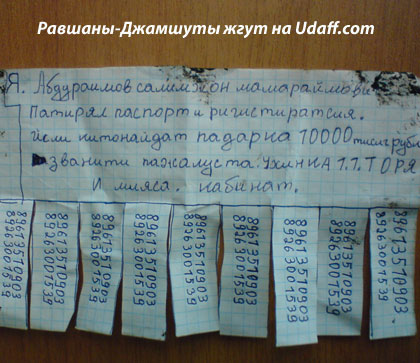 Равшаны-Джамшуты жгут на Udaff.com
Я. Абдураимов салимжон мамараимови
Патирял паспорт и ригистиратсия.
Исли китонайдат падарка 10000 тисич рубл
званити пажалуста. Ухинна Т.Т. ТОРЯ
И мияса. кабинат.
89613510903
89263001539
89613510903
89263001539
89613510903
89263001539
89613510903
89263001539
89613510903
89263001539
89613510903
89263001539
89613510903
89263001539
89613510903
89263001539
89613510903
89263001539